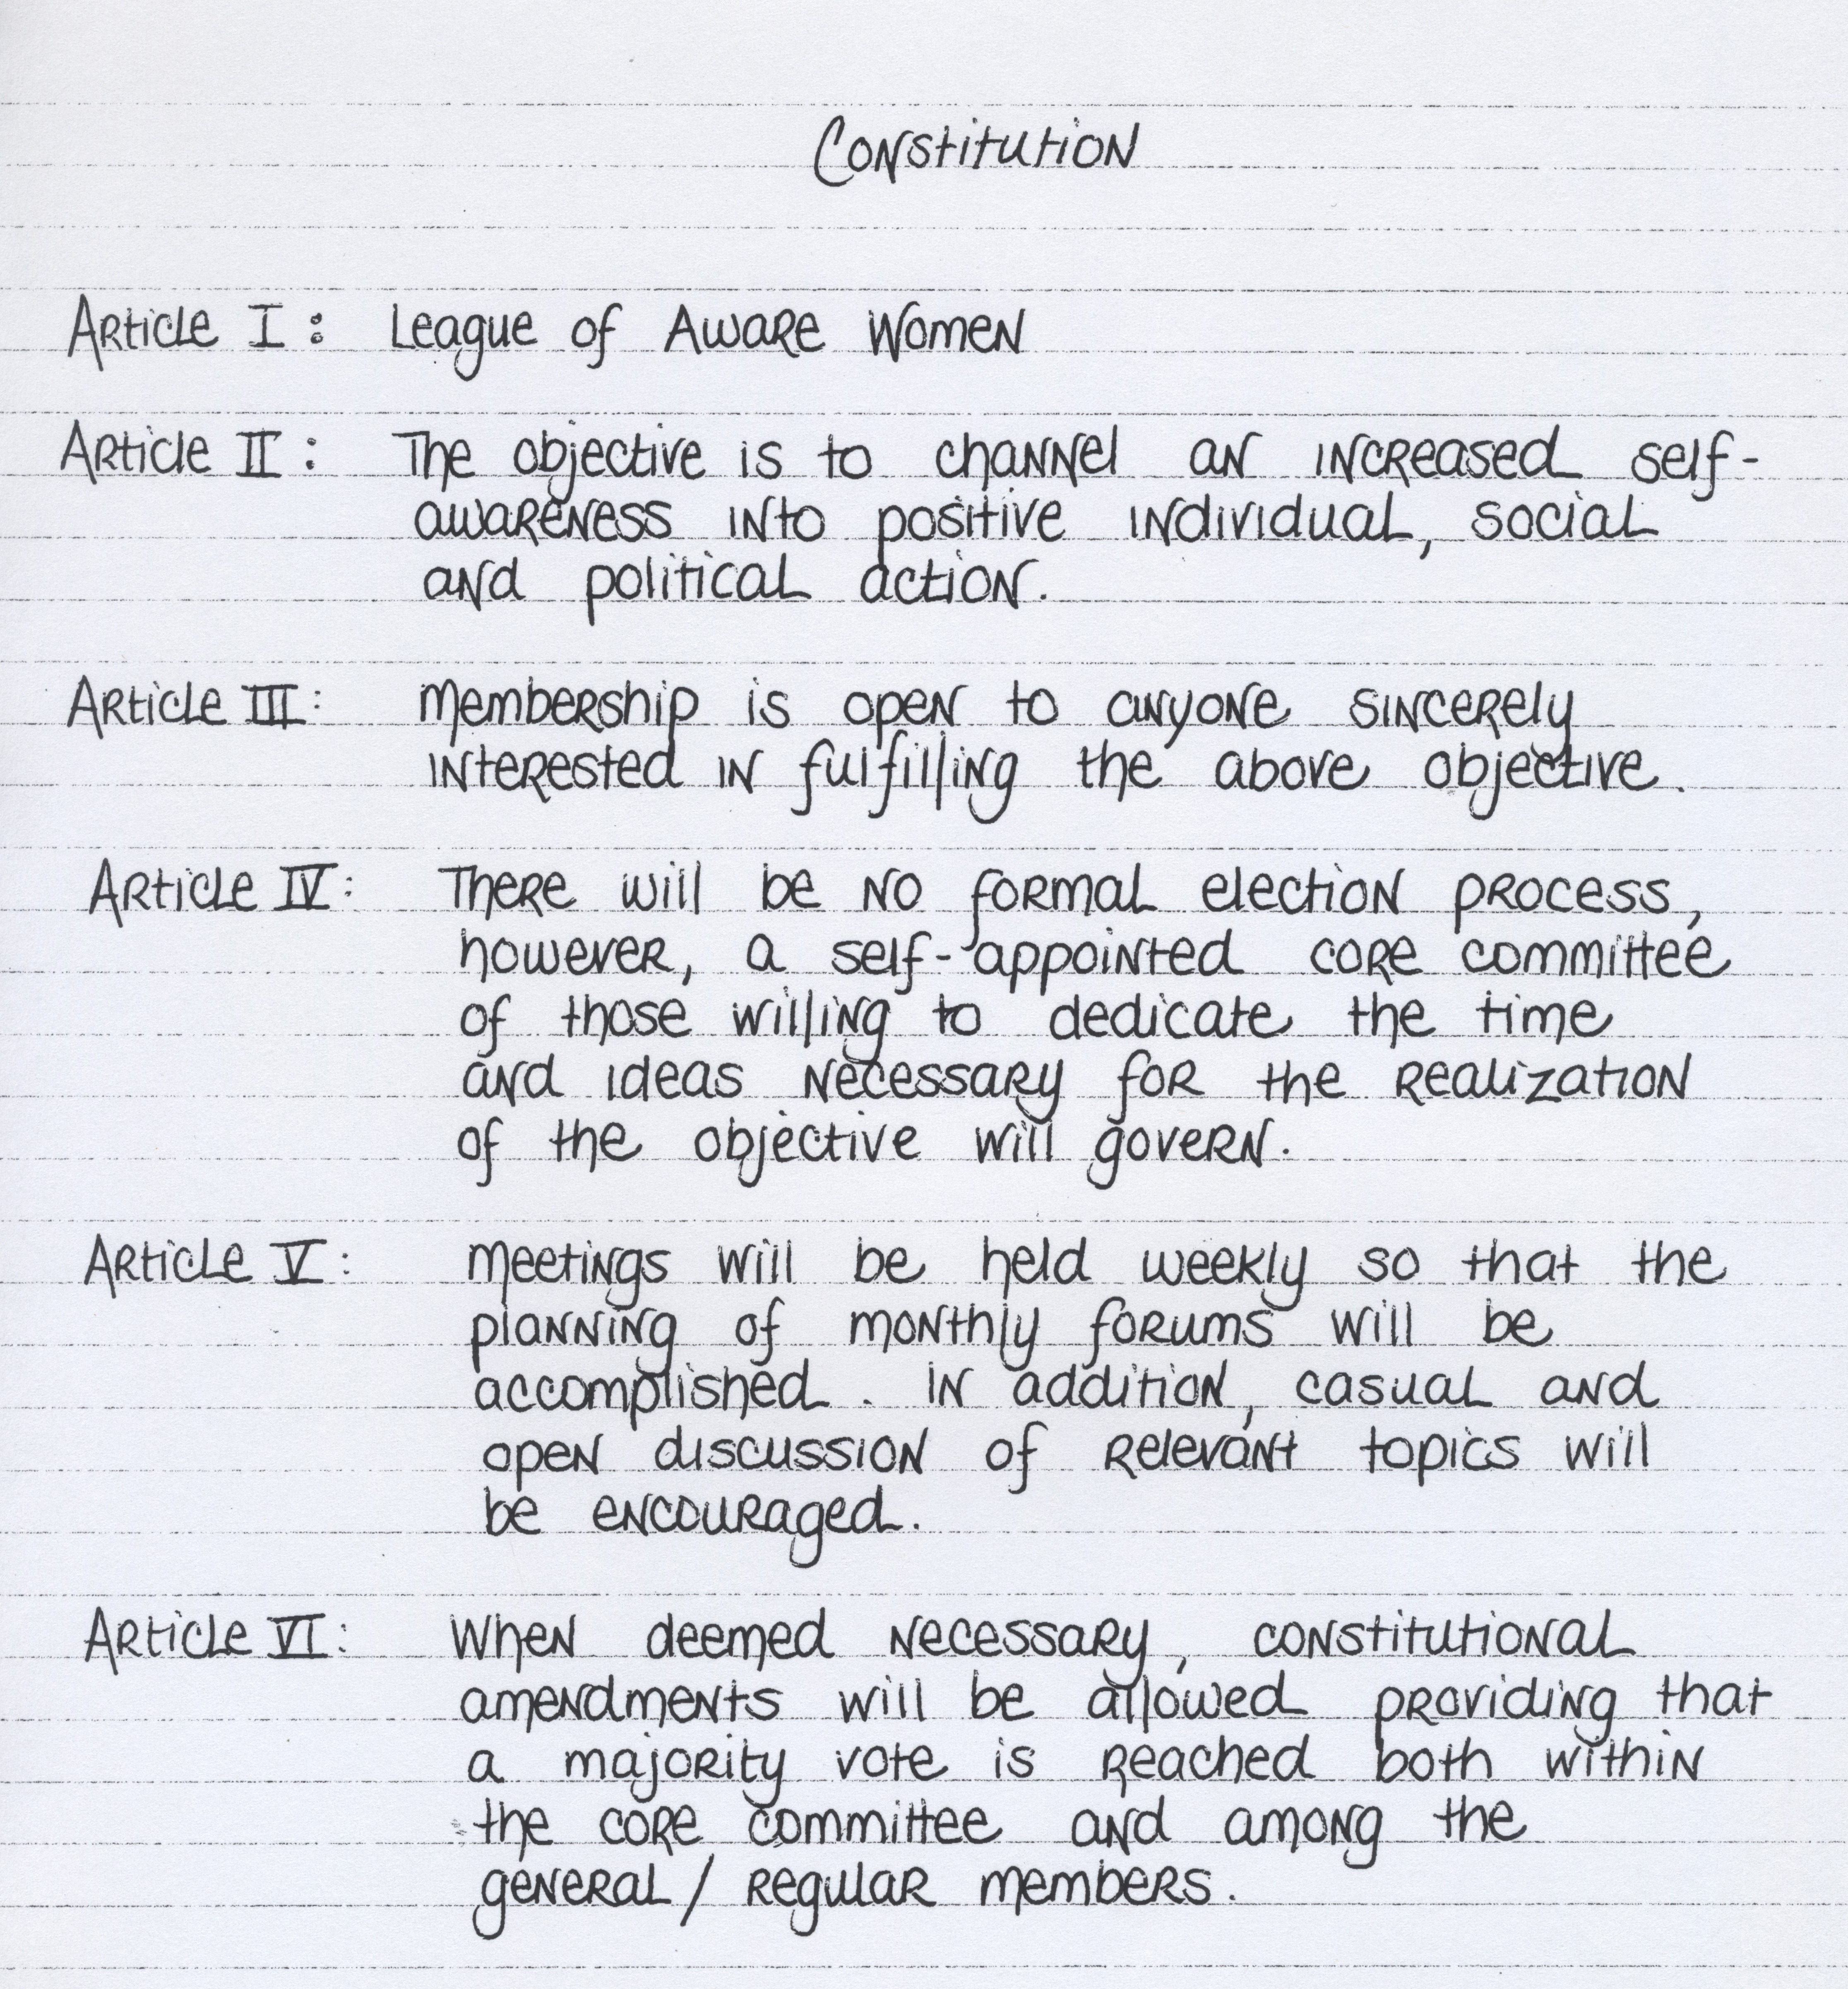 Constitution
Article I: League of Aware Women
Article II: The objective is to channel an increased self-
awareness into positive individual, social
and political action.
Article III: Membership is open to anyone sincerely
interested in fulfilling the above objective.
Article IV: There will be no formal election process,
however, a self-appointed core committee
of those willing to dedicate the time
and ideas necessary for the realization
of the objective will govern.
Article V: Meetings will be held weekly so that the
planning of monthly forums will be
accomplished. In addition, casual and
open discussion of relevant topics will
be encouraged.
Article VI: When deemed necessary, constitutional
amendments will be allowed providing that
a majority vote is reached both within
the core committee and among the
general/regular members.